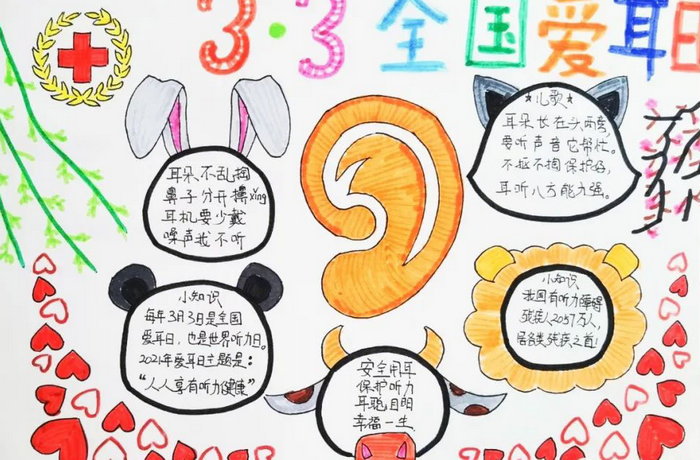 3·3全国爱耳日
耳朵不乱掏
鼻子分开擤xǐng
耳机要少戴
噪声我不听
★儿歌★
耳朵长在头两旁,
要听声音它帮忙。
不抠不掏保护好,
耳听八方能力强。
小知识
每年3月3日是全国
爱耳日,也是世界听力日。
2021年爱耳日主题是:
“人人享有听力健康”
小知识
我国有听力障碍
残疾人2057万人,
居各类残疾之首!
安全用耳
保护听力
耳聪目明
幸福一生